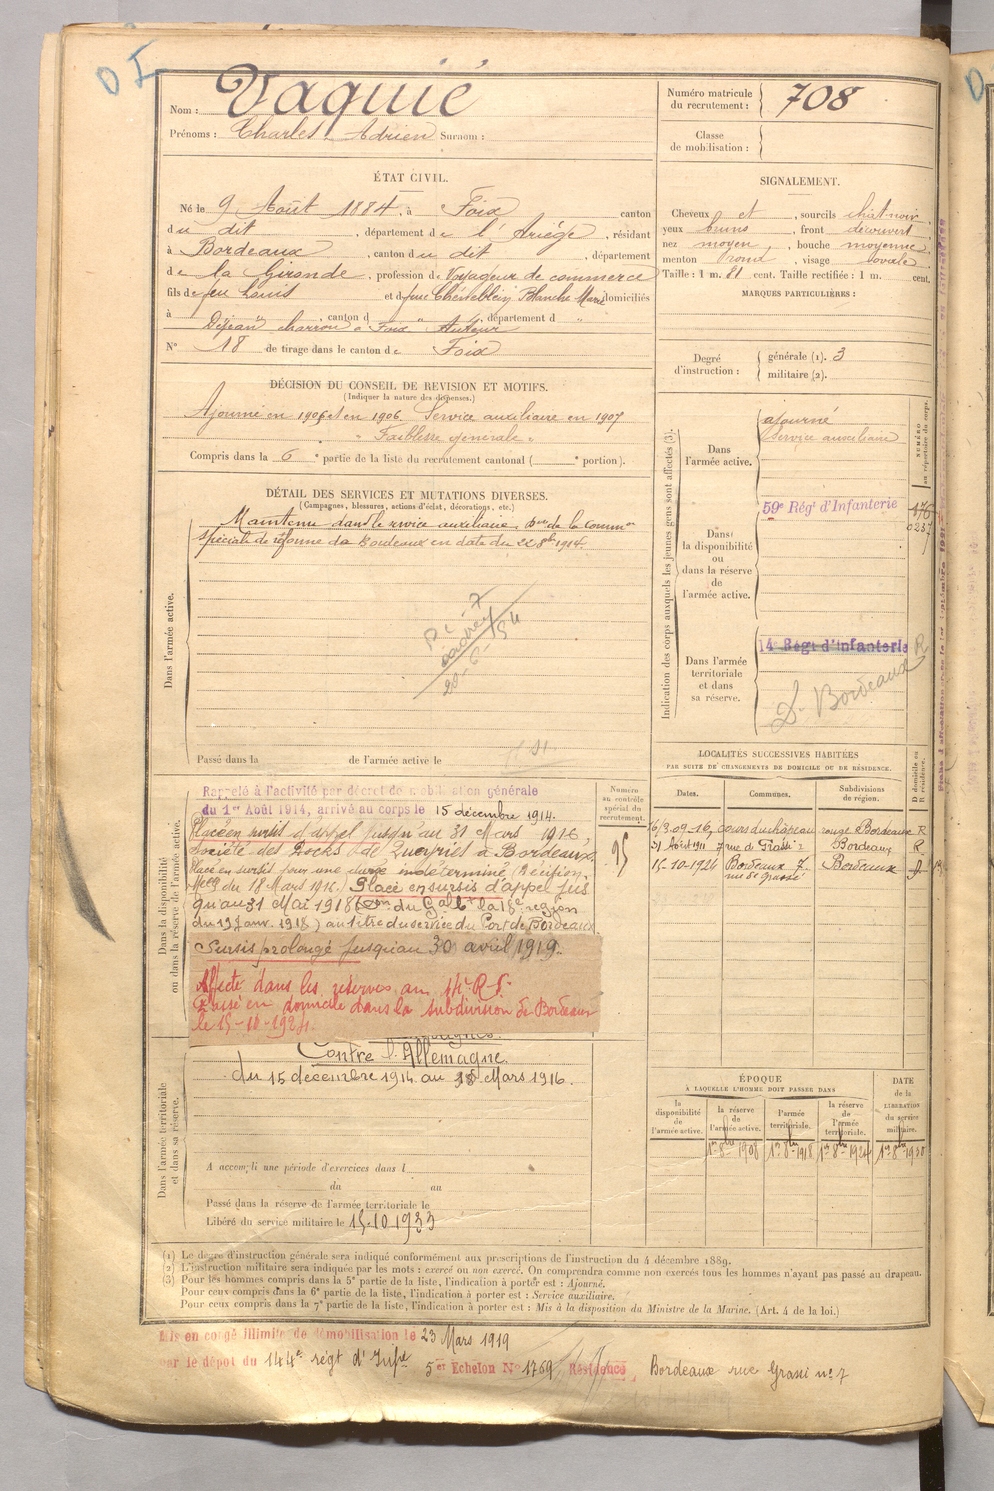 D I
Nom : Vaquié
Prénoms : Charles Adrien Surnom :
Numéro matricule du recrutement : 708
Classe de mobilisation :
ÉTAT CIVIL.
Né le 9 Août 1884, à Foix canton
du dit, département de l'Ariège, résidant
à Bordeaux, canton du dit, département
de la Gironde, profession de Voyageur de commerce
fils de feu Louis et de feue Blanche Marie domiciliés
à " , canton d " , département d "
Dejean charron à Foix Auteur
N° 18 de tirage dans le canton de Foix
SIGNALEMENT.
Cheveux et , sourcils chât-noir,
yeux bruns, front découvert,
nez moyen, bouche moyenne,
menton rond, visage ovale,
Taille : 1 m. 81 cent. Taille rectifiée : 1 m. cent.
MARQUES PARTICULIÈRES :
Degré d'instruction : générale (1). 3
militaire (2).
DÉCISION DU CONSEIL DE REVISION ET MOTIFS.
(Indiquer la nature des dispenses.)
Ajourné en 1905 et en 1906. Service auxiliaire en 1907
" Faiblesse générale "
Compris dans la 6e partie de la liste du recrutement cantonal ( e portion).
DÉTAIL DES SERVICES ET MUTATIONS DIVERSES.
(Campagnes, blessures, actions d'éclat, décorations, etc.)
Dans l'armée active.
Maintenu dans le service auxiliaire. Don de la Common
spéciale de réforme de Bordeaux en date du 22 8bre 1914.
Passé dans la de l'armée active le
Indication des corps auxquels les jeunes gens sont affectés (3).
NUMÉRO au répertoire du corps.
Dans l'armée active.
ajourné
Service auxiliaire
Dans la disponibilité ou dans la réserve de l'armée active.
59e Régt d'Infanterie
Dans l'armée territoriale et dans sa réserve.
14e Régt d'Infanterie R
D. Bordeaux
Dans la disponibilité ou dans la réserve de l'armée active.
Rappelé à l'activité par décret de mobilisation générale
du 1er Août 1914, arrivé au corps le 15 décembre 1914.
Placé en sursis d'appel jusqu'au 31 Mars 1916,
Société des Docks de Queyries à Bordeaux.
Placé en sursis pour une durée indéterminée (Décision
Melle du 18 Mars 1916). Placé en sursis d'appel jus
qu'au 31 Mai 1918 (Don du Gal Ct la 18e région
du 19 Janv. 1918) au titre du service du Port de Bordeaux
Sursis prolongé jusqu'au 30 avril 1919.
Affecté dans les réserves au 14e R.I.
Passé en domicile dans la subdivision de Bordeaux
le 15-10-1924.
Numéro au contrôle spécial du recrutement.
95
LOCALITÉS SUCCESSIVES HABITÉES
PAR SUITE DE CHANGEMENTS DE DOMICILE OU DE RÉSIDENCE.
Dates. Communes. Subdivisions de région. D domicile ou R résidence.
16/3.09-16, cours du chapeau rouge Bordeaux R
31 Août 1911 7 rue de Grassi Bordeaux R
15-10-1924 Bordeaux 7 rue de Grassi Bordeaux D
Dans l'armée territoriale et dans sa réserve.
Contre l'Allemagne.
du 15 décembre 1914 au 18 Mars 1916.
A accompli une période d'exercices dans l
du au
Passé dans la réserve de l'armée territoriale le
Libéré du service militaire le 15-10-1933
ÉPOQUE
À LAQUELLE L'HOMME DOIT PASSER DANS
la disponibilité de l'armée active. la réserve de l'armée active. l'armée territoriale. la réserve de l'armée territoriale.
DATE de la LIBÉRATION du service militaire.
1er 8bre 1908 1er 8bre 1918 1er 8bre 1924 1er 8bre 1930
(1) Le degré d'instruction générale sera indiqué conformément aux prescriptions de l'instruction du 4 décembre 1889.
(2) L'instruction militaire sera indiquée par les mots : exercé ou non exercé. On comprendra comme non exercés tous les hommes n'ayant pas passé au drapeau.
(3) Pour les hommes compris dans la 5e partie de la liste, l'indication à porter est : Ajourné.
Pour ceux compris dans la 6e partie de la liste, l'indication à porter est : Service auxiliaire.
Pour ceux compris dans la 7e partie de la liste, l'indication à porter est : Mis à la disposition du Ministre de la Marine. (Art. 4 de la loi.)
Mis en congé illimité de démobilisation le 23 Mars 1919
par le dépôt du 144e régt d'Infie 5e Echelon N° 1769 Résidence Bordeaux rue Grassi n° 7